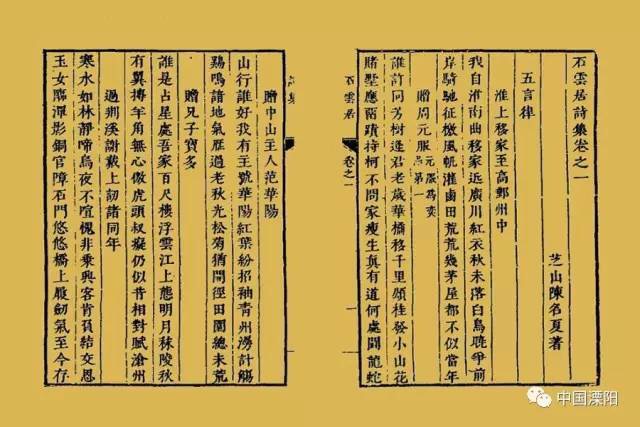 石雲居詩集卷之一
芝山陳名夏著
五言律
淮上移家至高郵舟中
我自淮南曲移家近廣川紅衣秋未落白鳥晚爭前
岸騎馳征檄風帆淮鹵田荒荒幾茅屋都不似當年
贈周元服元服為奕品第一
誰許同芳樹逢君老歲華橋移千里頭桂發小山花
賭墅應兩蹟持柯不問家瘦生真有道何處鬭龍蛇
石雲居
卷之一
詩集
贈中山主人范華陽
山行誰好我有主號華陽紅葉紛招袖青州湧計觴
鷄鳴諳地氣雁過老秋光松菊猶間徑田園總未荒
贈兄子寶多
誰是占星處吾家百尺樓浮雲江上態明月秣陵秋
有翼摶羊角無心傲虎頭叔癡仍似昔相對賦滄州
過荆溪謝戴上訒諸同年
寒水如林靜啼烏夜不喧愧非乘興客肯負結交恩
玉女臨潭影銅官障石門悠悠橋上履劒氣至今存
中国溧阳